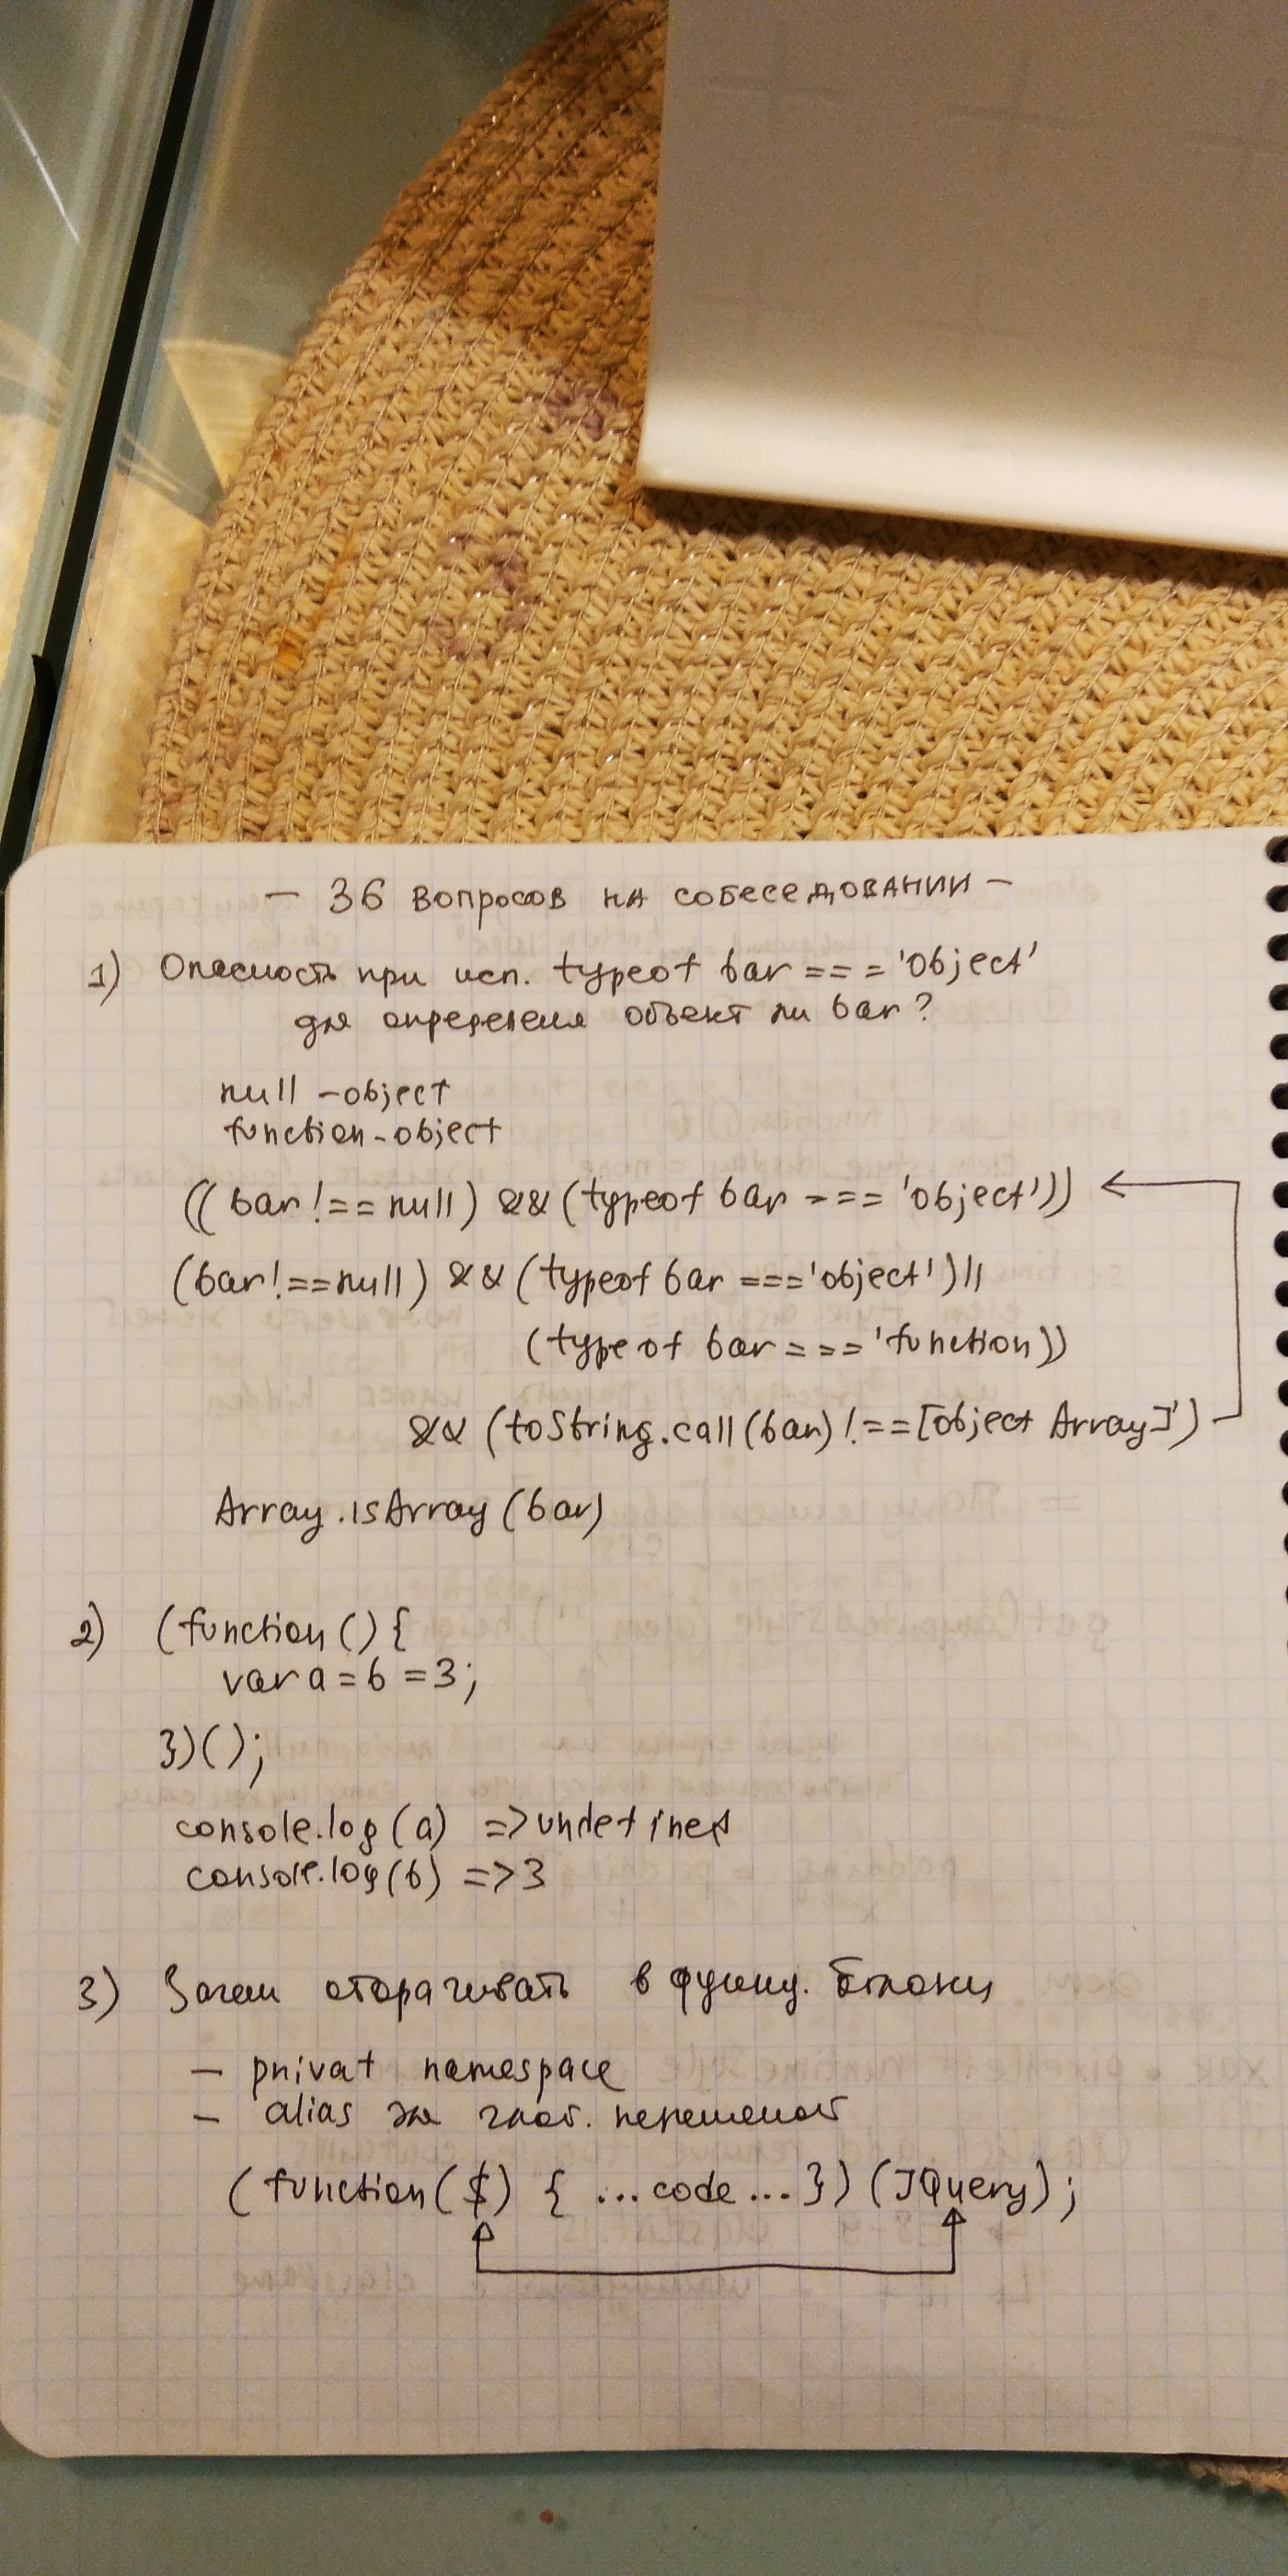 — 36 вопросов на собеседовании —
1) Опасность при исп. typeof bar === 'object'
для определения объект ли bar?
null - object
function - object
((bar !== null) && (typeof bar === 'object'))
(bar !== null) && (typeof bar === 'object') ||
(typeof bar === 'function))
&& (toString.call(bar) !== [object Array]')
Array.isArray(bar)
2) (function () {
var a = b = 3;
})();
console.log(a) => undefined
console.log(b) => 3
3) Зачем оборачивать в функц. блоки
— privat namespace
— alias для глоб. переменной
(function($) { ...code... }) (JQuery);